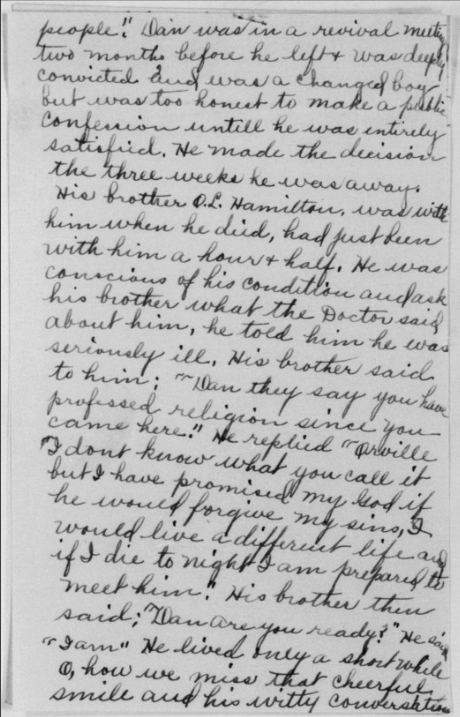 people." Dan was in a revival meeting
two months before he left & was deeply
convicted and was a changed boy
but was too honest to make a public
confession untill he was entirely
satisfied. He made the decision
the three weeks he was away.
His brother O.L. Hamilton, was with
him when he died, had just been
with him a hour & half. He was
conscious of his condition and ask
his brother what the Doctor said
about him, he told him he was
seriously ill. His brother said
to him; "Dan they say you have
professed religion since you
came here." He replied "Orville
"I dont know what you call it
but I have promised my God if
he would forgive my sins, I
would live a different life and
if I die to night I am prepared to
meet him." His brother then
said; "Dan are you ready?" He said
"I am" He lived only a short while
O, how we miss that cheerful
smile and his witty conversation